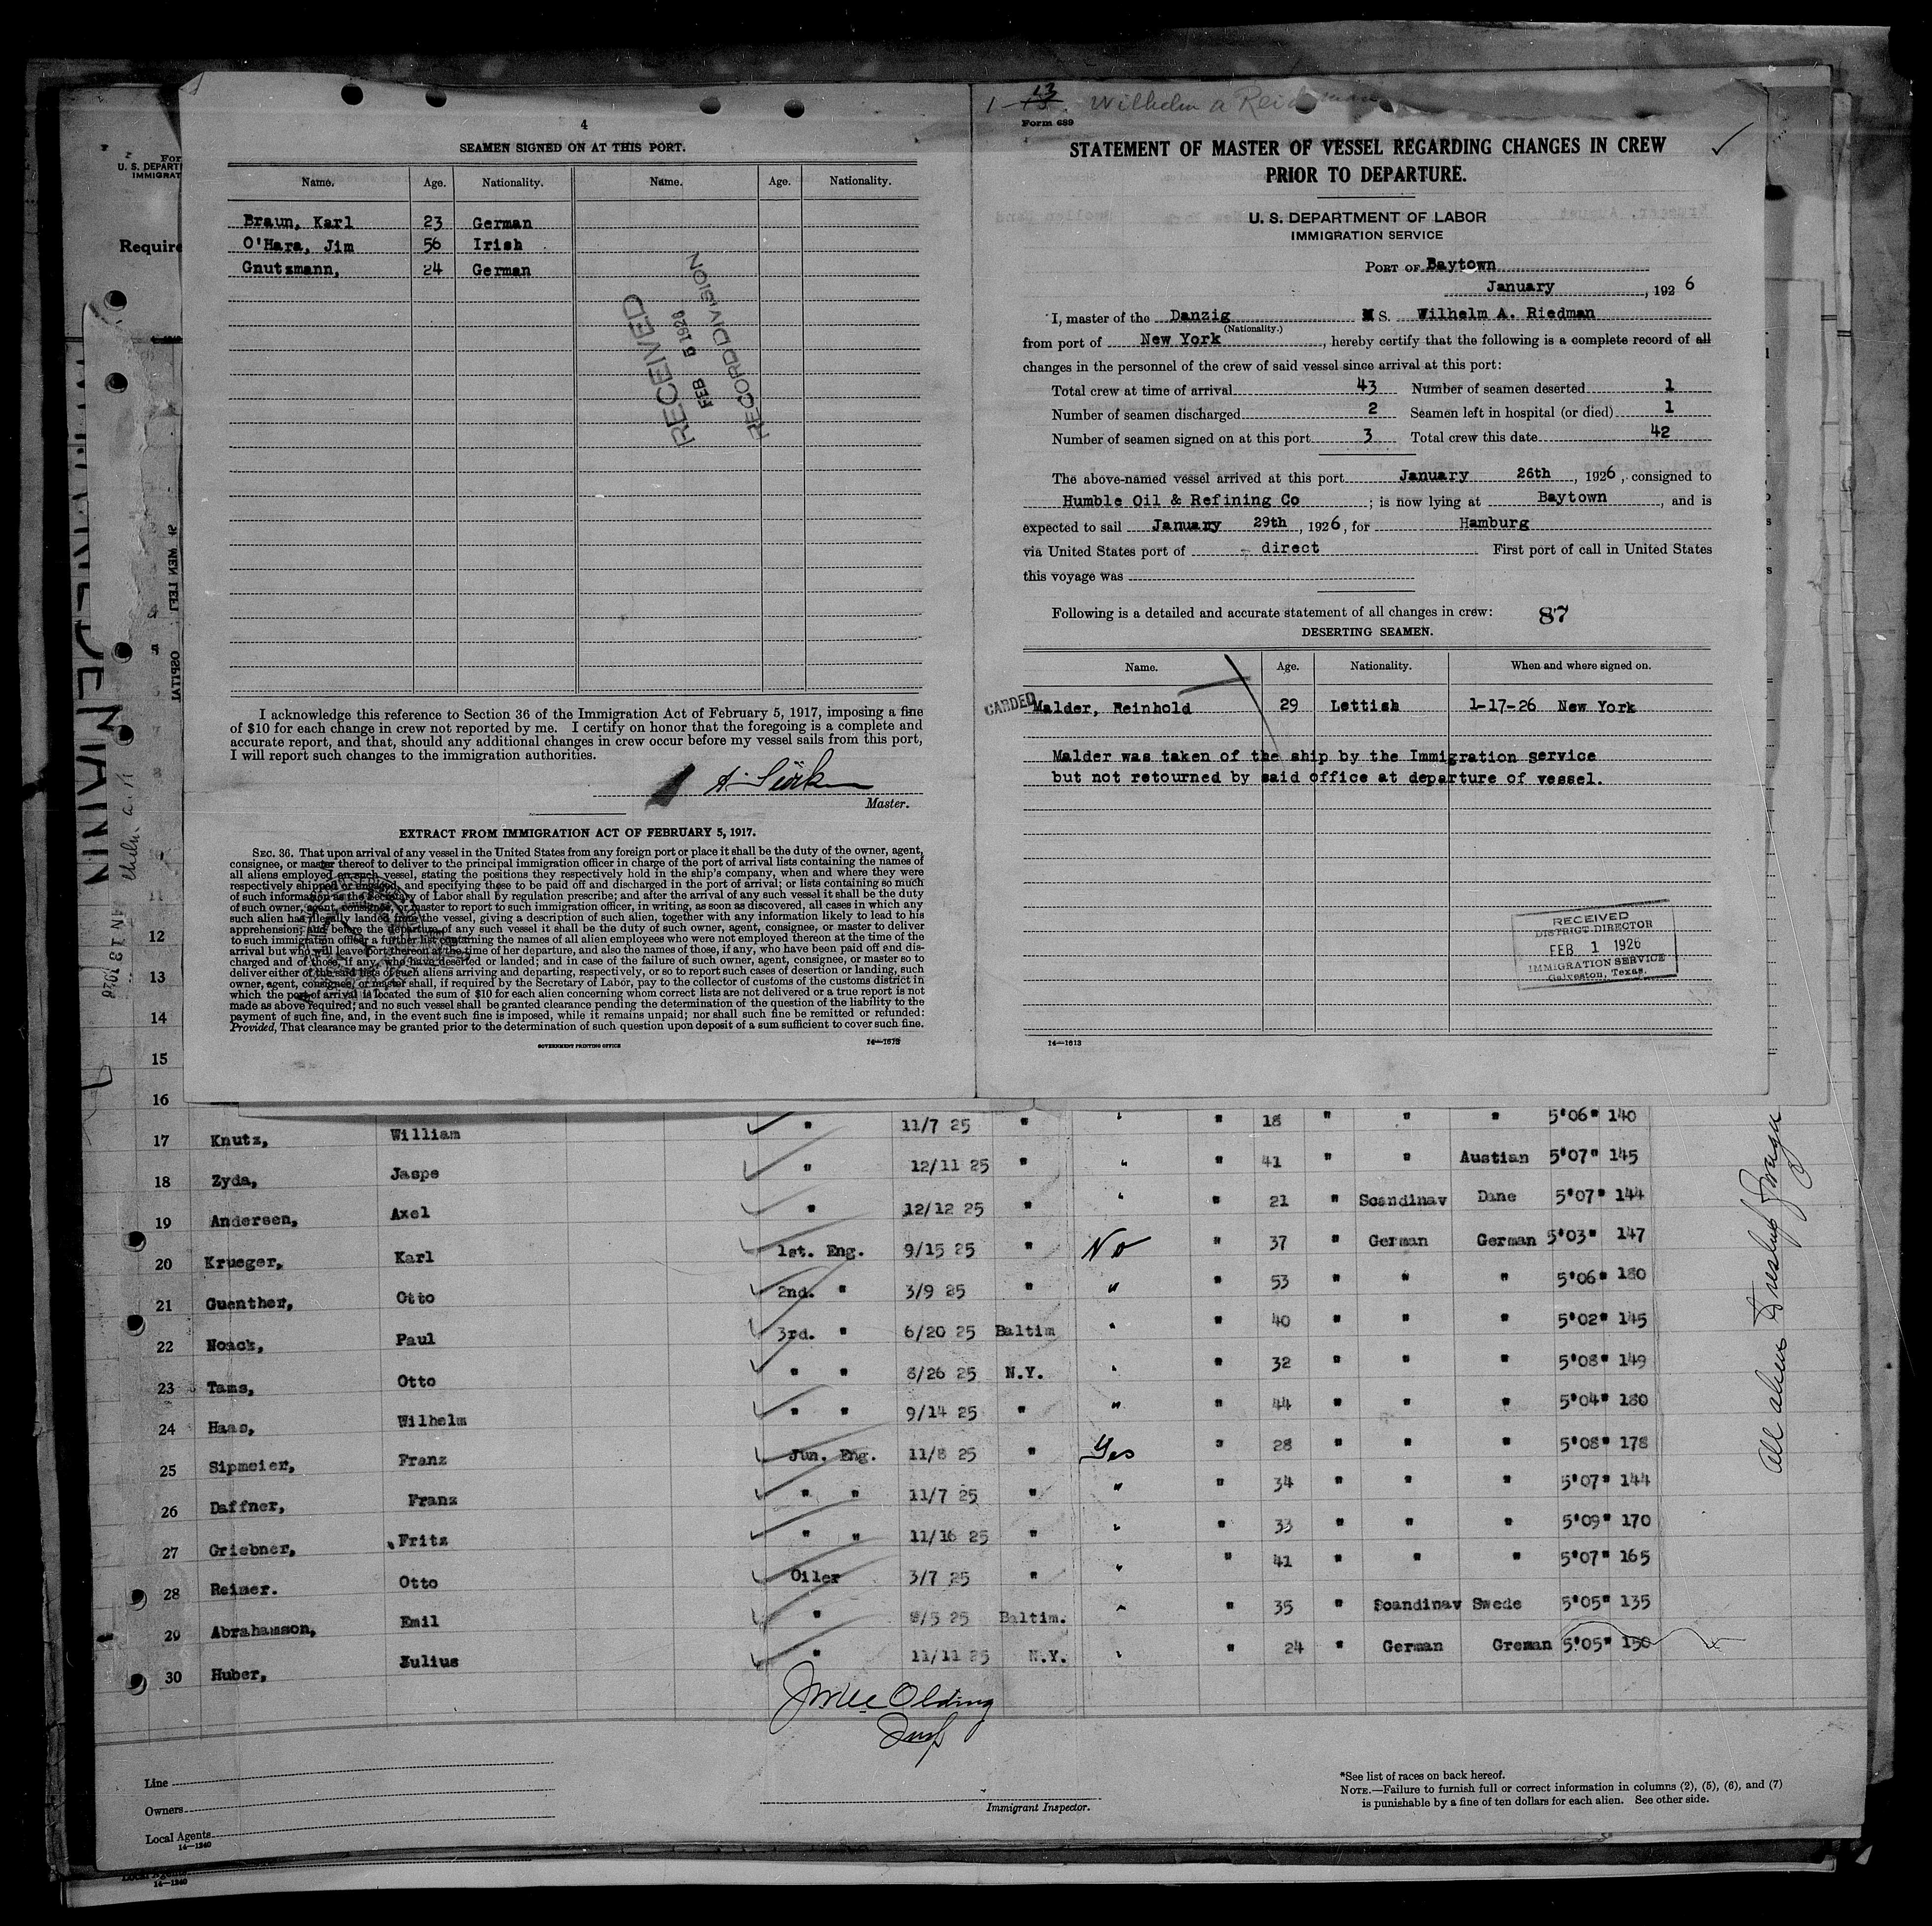 4
SEAMEN SIGNED ON AT THIS PORT.
Name. Age. Nationality. Name. Age. Nationality.
Braun, Karl 23 German
O'Hara, Jim 56 Irish
Gnutzmann, 24 German
RECEIVED
FEB 5 1926
RECORD DIVISION
I acknowledge this reference to Section 36 of the Immigration Act of February 5, 1917, imposing a fine
of $10 for each change in crew not reported by me. I certify on honor that the foregoing is a complete and
accurate report, and that, should any additional changes in crew occur before my vessel sails from this port,
I will report such changes to the immigration authorities.
Master.
EXTRACT FROM IMMIGRATION ACT OF FEBRUARY 5, 1917.
SEC. 36. That upon arrival of any vessel in the United States from any foreign port or place it shall be the duty of the owner, agent,
consignee, or master thereof to deliver to the principal immigration officer in charge of the port of arrival lists containing the names of
all aliens employed on such vessel, stating the positions they respectively hold in the ship's company, when and where they were
respectively shipped or engaged, and specifying those to be paid off and discharged in the port of arrival; or lists containing so much
of such information as the Secretary of Labor shall by regulation prescribe; and after the arrival of any such vessel it shall be the duty
of such owner, agent, consignee, or master to report to such immigration officer, in writing, as soon as discovered, all cases in which any
such alien has illegally landed from the vessel, giving a description of such alien, together with any information likely to lead to his
apprehension; and before the departure of any such vessel it shall be the duty of such owner, agent, consignee, or master to deliver
to such immigration officer a further list containing the names of all alien employees who were not employed thereon at the time of the
arrival but who will leave port thereon at the time of her departure, and also the names of those, if any, who have been paid off and dis-
charged and of those, if any, who have deserted or landed; and in case of the failure of such owner, agent, consignee, or master so to
deliver either of the said lists of such aliens arriving and departing, respectively, or so to report such cases of desertion or landing, such
owner, agent, consignee, or master shall, if required by the Secretary of Labor, pay to the collector of customs of the customs district in
which the port of arrival is located the sum of $10 for each alien concerning whom correct lists are not delivered or a true report is not
made as above required; and no such vessel shall be granted clearance pending the determination of the question of the liability to the
payment of such fine, and, in the event such fine is imposed, while it remains unpaid; nor shall such fine be remitted or refunded:
Provided, That clearance may be granted prior to the determination of such question upon deposit of a sum sufficient to cover such fine.
GOVERNMENT PRINTING OFFICE 14—1613
13
Wilhelm a Reidemann
Form 689
STATEMENT OF MASTER OF VESSEL REGARDING CHANGES IN CREW
PRIOR TO DEPARTURE.
U. S. DEPARTMENT OF LABOR
IMMIGRATION SERVICE
PORT OF Baytown
January, 1926
I, master of the Danzig M S. Wilhelm A. Riedman
(Nationality.)
from port of New York, hereby certify that the following is a complete record of all
changes in the personnel of the crew of said vessel since arrival at this port:
Total crew at time of arrival 43 Number of seamen deserted 1
Number of seamen discharged 2 Seamen left in hospital (or died) 1
Number of seamen signed on at this port 3 Total crew this date 42
The above-named vessel arrived at this port January 26th, 1926, consigned to
Humble Oil & Refining Co; is now lying at Baytown, and is
expected to sail January 29th, 1926, for Hamburg
via United States port of - direct First port of call in United States
this voyage was
Following is a detailed and accurate statement of all changes in crew: 87
DESERTING SEAMEN.
Name. Age. Nationality. When and where signed on.
CARDED
Malder, Reinhold 29 Lettish 1-17-26 New York
Malder was taken of the ship by the Immigration service
but not retourned by said office at departure of vessel.
RECEIVED
DISTRICT DIRECTOR
FEB 1 1926
IMMIGRATION SERVICE
Galveston, Texas.
14—1613
For
U. S. DEPARTM
IMMIGRAT
Require
WEN LEFT
OSPITAL
EDEMANN
JAN 18 1926
11
12
13
14
15
16
17 Knutz, William " 11/7 25 " " " 18 " " " 5'06" 140
18 Zyda, Jaspe " 12/11 25 " " " 41 " " Austian 5'07" 145
19 Andersen, Axel " 12/12 25 " " " 21 " Scandinav Dane 5'07" 144
20 Krueger, Karl 1st. Eng. 9/15 25 " No " 37 " German German 5'03" 147
21 Guenther, Otto 2nd. " 3/9 25 " " " 53 " " " 5'06" 180
22 Noack, Paul 3rd. " 6/20 25 Baltim " " 40 " " " 5'02" 145
23 Tams, Otto " " 8/26 25 N.Y. " " 32 " " " 5'08" 149
24 Haas, Wilhelm " " 9/14 25 " " " 44 " " " 5'04" 180
25 Sipmeier, Franz Jun. Eng. 11/8 25 " Yes " 28 " " " 5'08" 178
26 Daffner, Franz " " 11/7 25 " " " 34 " " " 5'07" 144
27 Griebner, Fritz " " 11/16 25 " " " 33 " " " 5'09" 170
28 Reimer. Otto Oiler 3/7 25 " " " 41 " " " 5'07" 165
29 Abrahamson, Emil " /5 25 Baltim. " " 35 " Scandinav Swede 5'05" 135
30 Huber, Julius " 11/11 25 N.Y. " " 24 " German Greman 5'05" 150
Olding
Insp
Line
Owners
Local Agents
14—1240
Immigrant Inspector.
*See list of races on back hereof.
NOTE.—Failure to furnish full or correct information in columns (2), (5), (6), and (7)
is punishable by a fine of ten dollars for each alien. See other side.
14—1240
All aliens